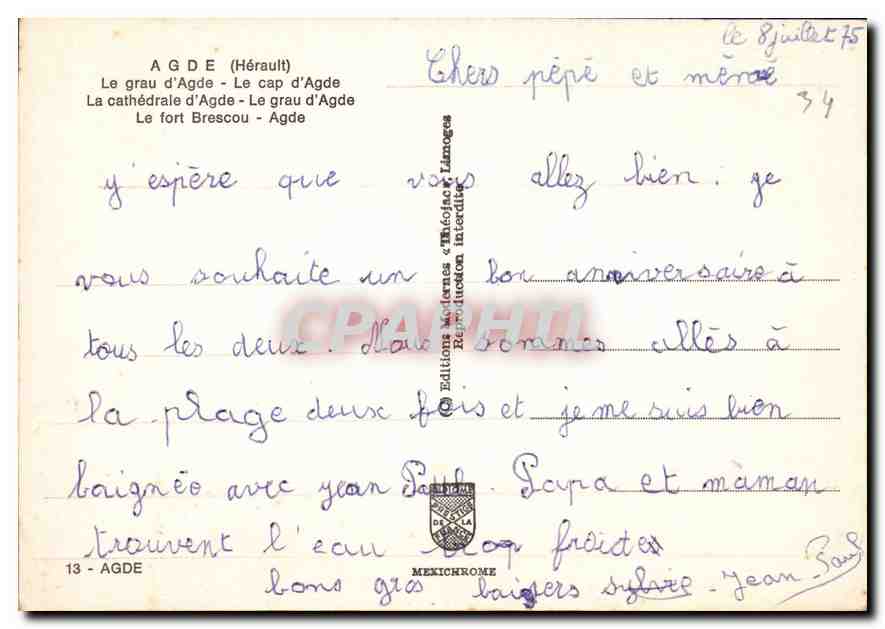 le 8 juillet 75
AGDE (Hérault)
Le grau d'Agde - Le cap d'Agde
La cathédrale d'Agde - Le grau d'Agde
Le fort Brescou - Agde
Chers pépé et mémé
34
y'espère que vous allez bien. je
vous souhaite un bon anniversaire à
tous les deux. Nous sommes allés à
la plage deux fois et je me suis bien
baignée avec jean Paul. Papa et maman
trouvent l'eau trop froide
bons gros baisers sylvie - Jean-Paul
(C) Editions Modernes «Théojac», Limoges
Reproduction interdite
CPAPHIL
PRESTIGE
DE LA
FRANCE
MEXICHROME
13 - AGDE